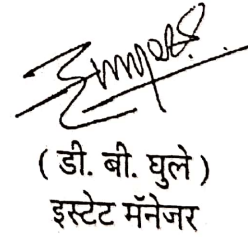 ( डी. बी. घुले )
इस्टेट मॅनेजर